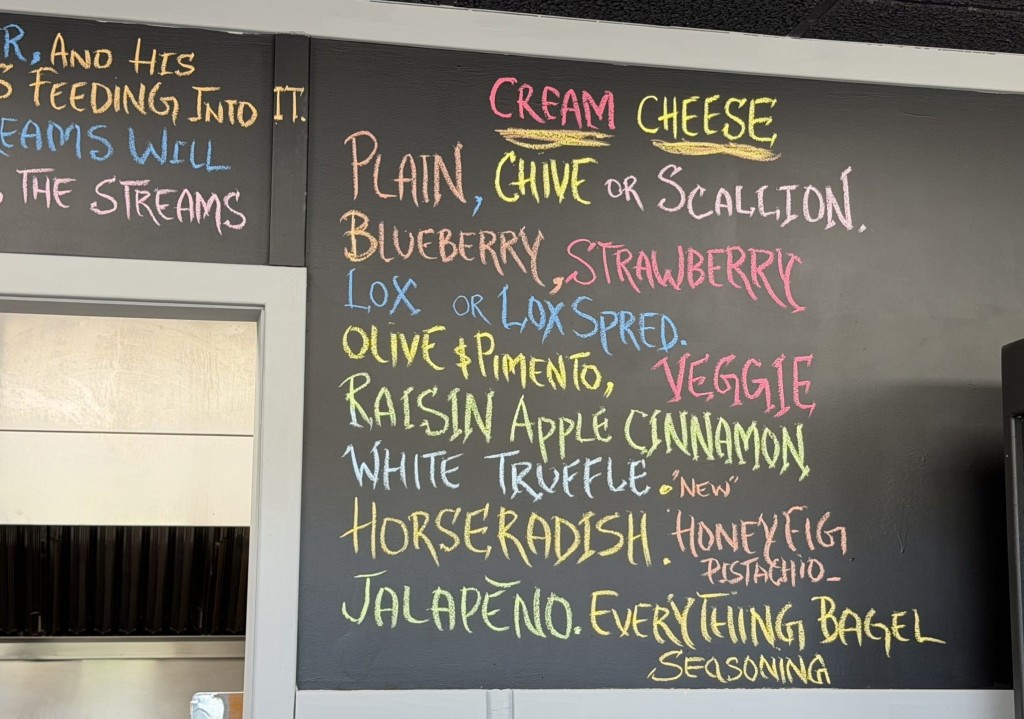 R, AND HIS
S FEEDING INTO IT.
EAMS WILL
, THE STREAMS
CREAM CHEESE
PLAIN, CHIVE OR SCALLION.
BLUEBERRY, STRAWBERRY
LOX OR LOX SPRED.
OLIVE & PIMENTO, VEGGIE
RAISIN APPLE CINNAMON
WHITE TRUFFLE. "NEW"
HORSERADISH. HONEY FIG
PISTACHIO-
JALAPEÑO. EVERYTHING BAGEL
SEASONING